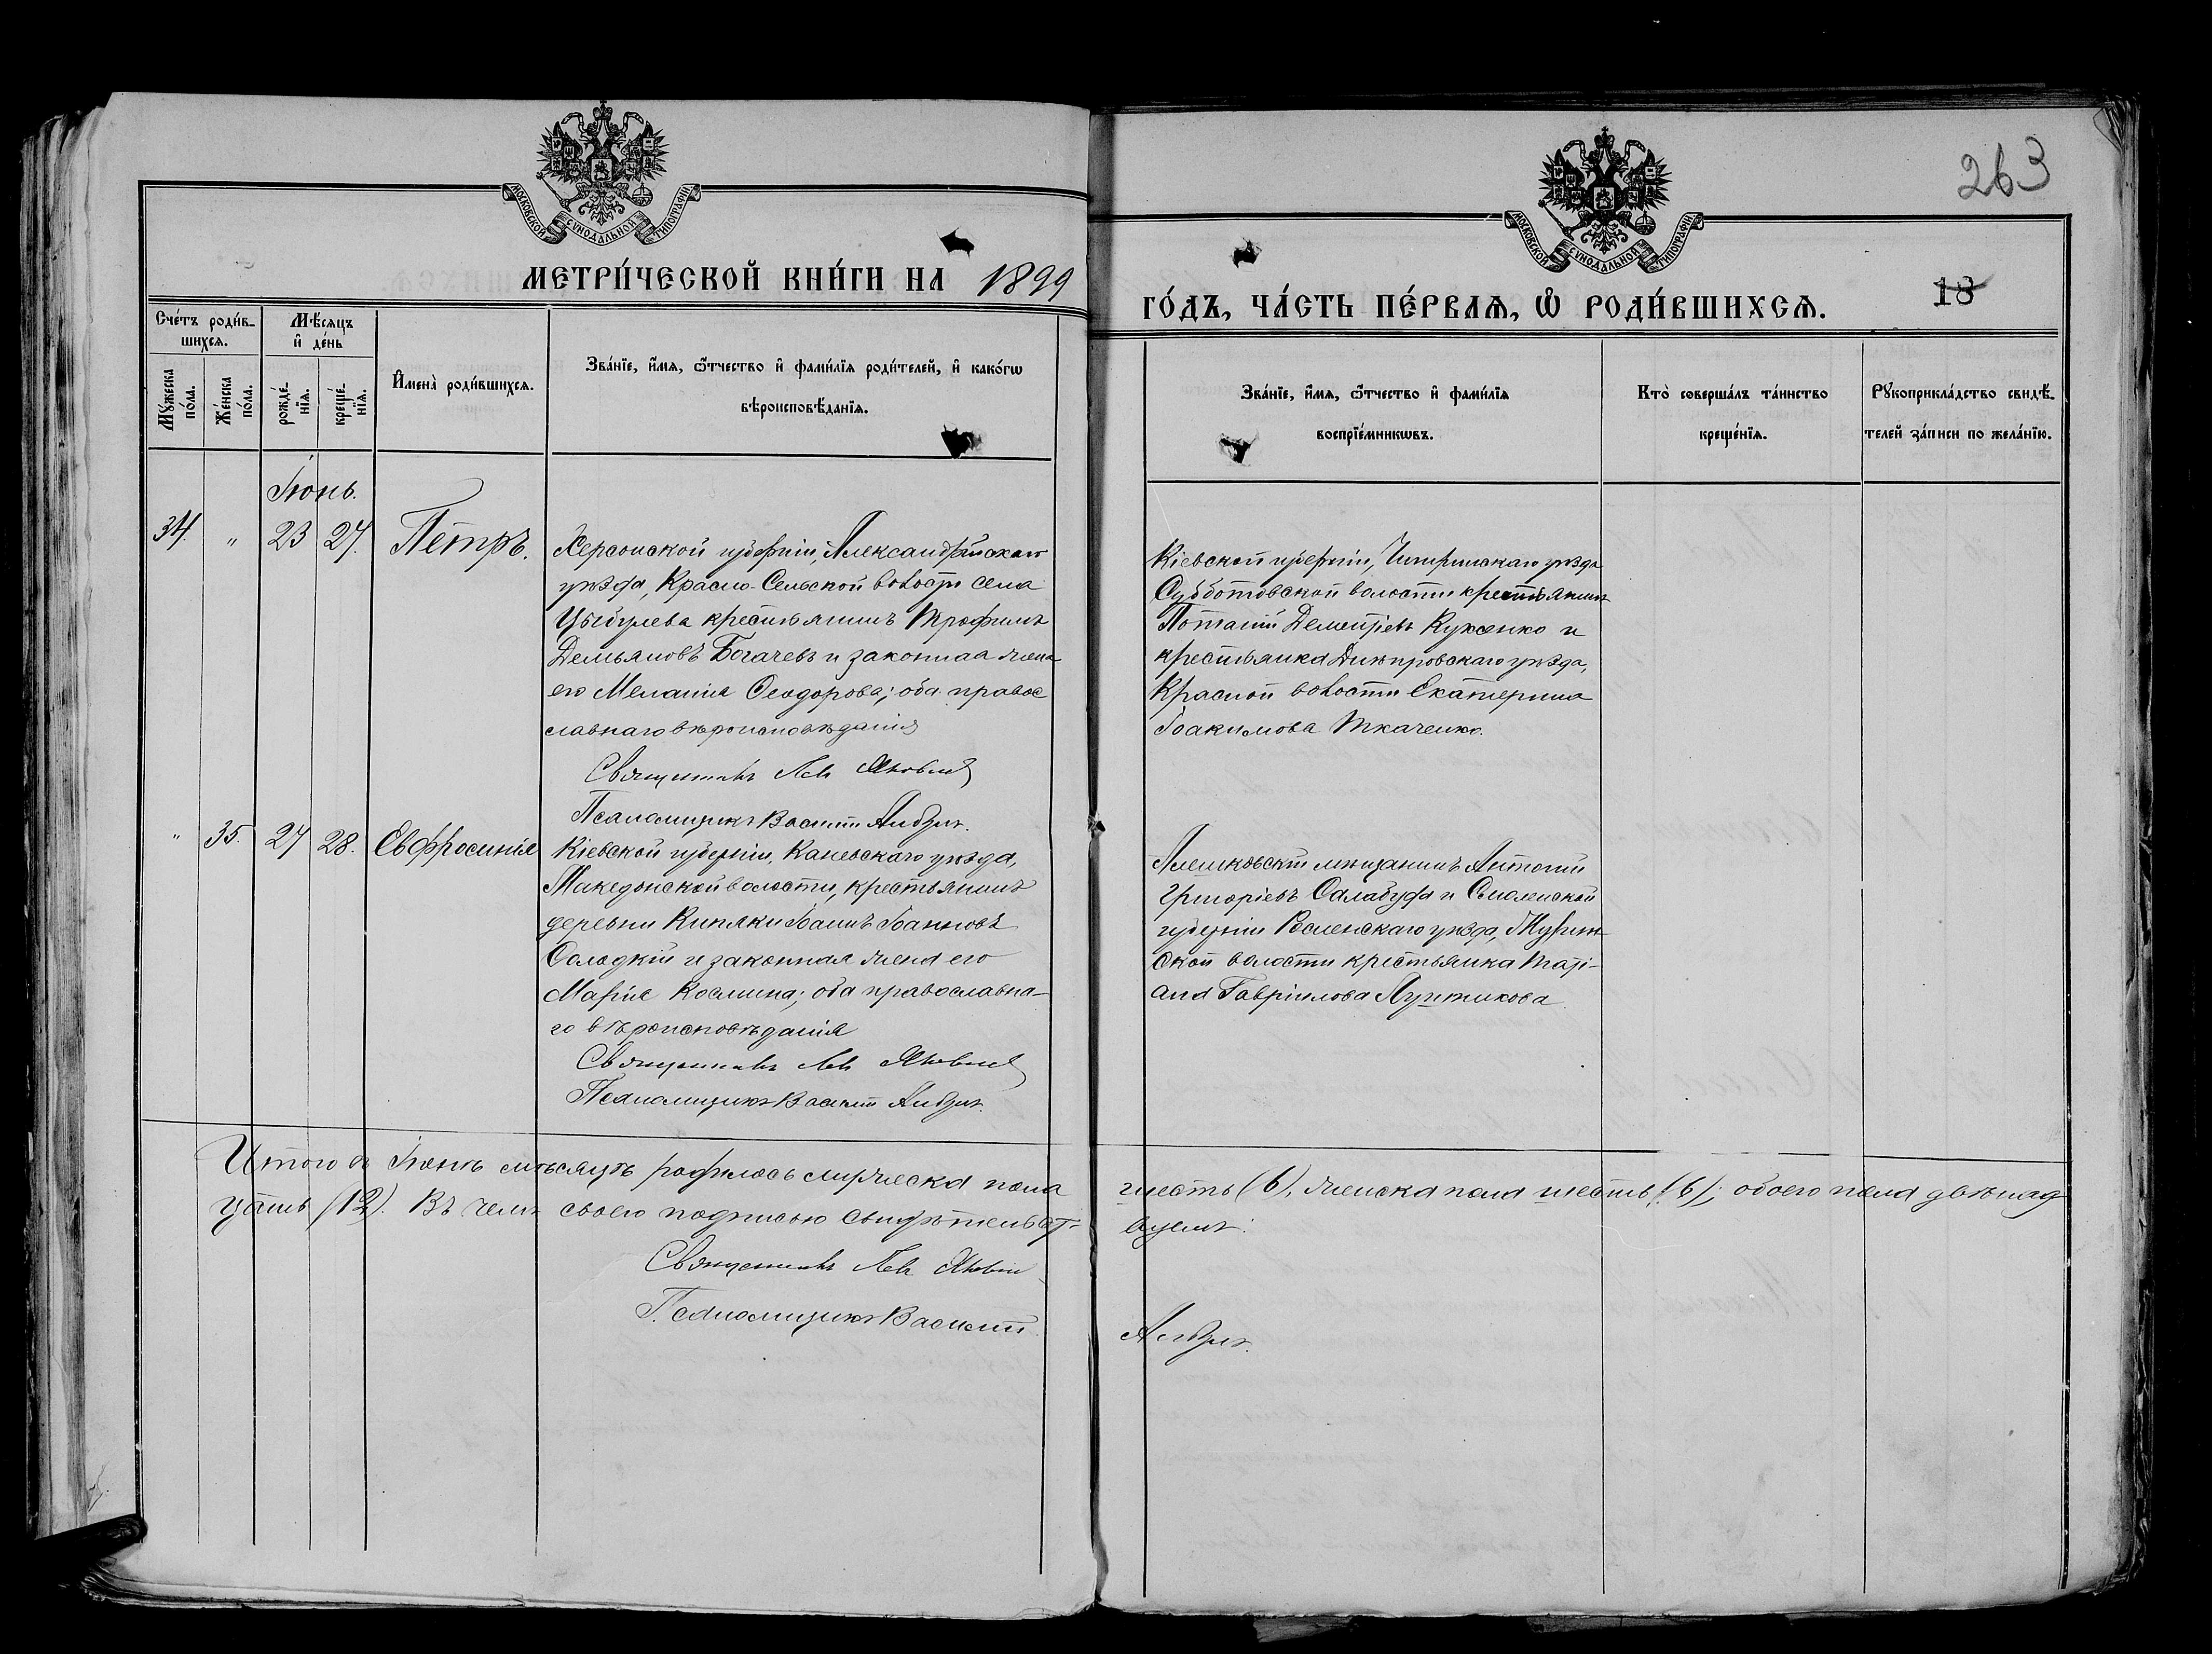 263
МОСКОВСКОЙ СѴНОДАЛЬНОЙ ТИПОГРАФІИ
МОСКОВСКОЙ СѴНОДАЛЬНОЙ ТИПОГРАФІИ
МЕТРИ́ЧЕСКОЙ КНИ́ГИ НА 1899
ГО́ДЪ, ЧА́СТЬ ПЕ́РВАѦ, Ѽ РОДИ́ВШИХСѦ.
18
Сче́тъ роди́в-
шихсѧ.
Мѣ́сѧцъ
и҆ де́нь
Мꙋжеска по́ла.
Же́нска по́ла.
рожде́нїѧ.
креще́нїѧ.
И҆мена̀ роди́вшихсѧ.
Зва́нїе, и҆́мѧ, ѻ҆́тчество и҆ фами́лїѧ роди́телей, и҆ како́гѡ
вѣроисповѣ́данїѧ.
Зва́нїе, и҆́мѧ, ѻ҆́тчество и҆ фами́лїѧ
воспрїе́мникѡвъ.
Кто̀ соверша́лъ та́инство
креще́нїѧ.
Рꙋкоприкла́дство свидѣ́-
телей за́писи по жела́нїю.
Іюнь.
34. „ 23 27. Петръ.
Херсонской губерніи, Александрійскаго
уѣзда, Красно-Сельской волости села
Цыбулева крестьянинъ Трофимъ
Демьяновъ Богачевъ и законная жена
его Меланія Ѳеодорова; оба правос
славнаго вѣроисповѣданія
Священникъ Левъ
Псаломщикъ Василій
Кіевской губерніи, Чигиринскаго уѣзда
Субботовской волости крестьянинъ
Потапій Дементіевъ Куженко и
крестьянка Днѣпровскаго уѣзда,
Красной волости Екатерина
Іоакимова Ткаченко.
„ 35. 27 28. Евфросинія
Кіевской губерніи, Каневскаго уѣзда,
Македонской волости, крестьянинъ
деревни Кипяки Іоаннъ Іоанновъ
Солодкій и законная жена его
Марія Космина; оба православна-
го вѣроисповѣданія
Священникъ Левъ
Псаломщикъ Василій
Алешковскій мѣщанинъ Антоній
Григоріевъ Саламбуда и Смоленской
губерніи уѣзда,
ской волости крестьянка Тати-
ана Гавріилова
Итого въ Іюнѣ мѣсяцѣ родилось мужеска пола шесть (6), женска пола шесть (6); обоего пола двѣнад
цать (12). Въ чемъ своею подписью свидѣтельст- вуемъ:
Священникъ Левъ
Псаломщикъ Василій